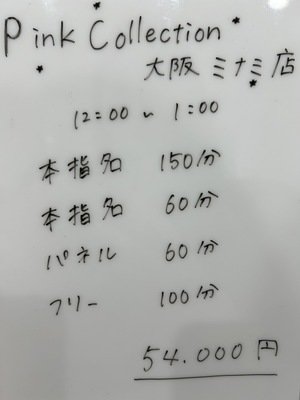 Pink Collection
大阪ミナミ店
12:00 〜 1:00
本指名 150分
本指名 60分
パネル 60分
フリー 100分
54.000円